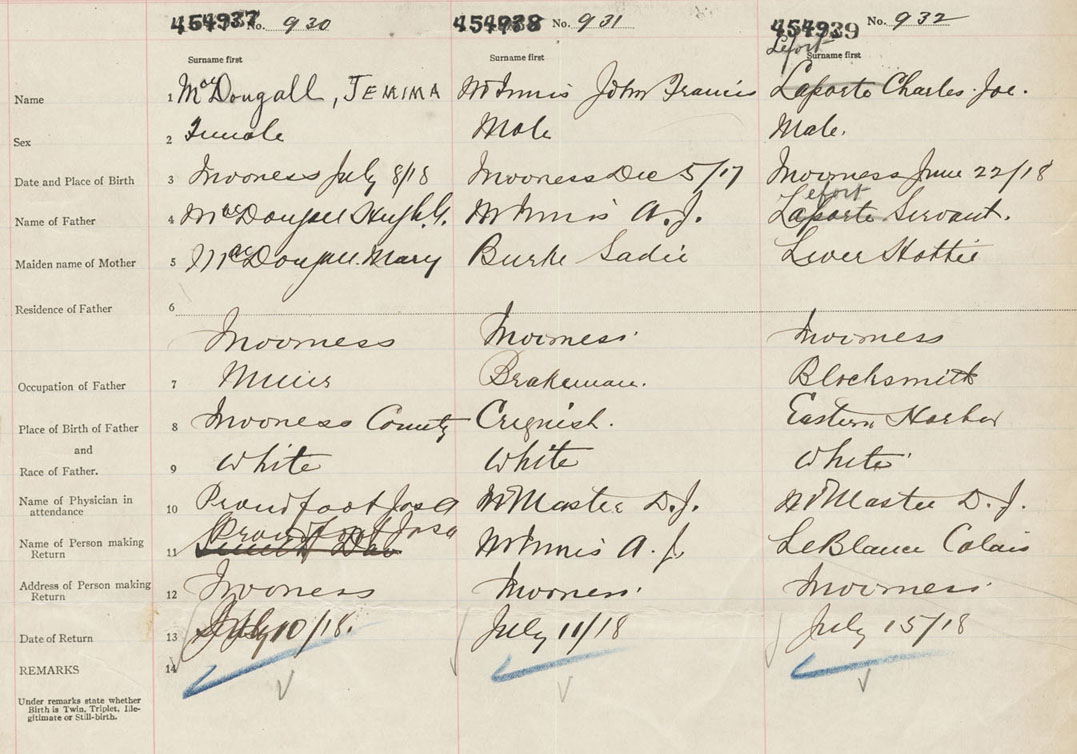 454937 No. 930 454938 No. 931 454939 No. 932
Lefort
Surname first Surname first Surname first
Name 1 McDougall, JEMIMA McInnis John Francis Laporte Charles Joe.
Sex 2 Female Male Male.
Date and Place of Birth 3 Inverness July 8/18 Inverness Dec 5/17 Inverness June 22/18
Lefort
Name of Father 4 McDougall Hugh G. McInnis A. J. Laporte Servant.
Maiden name of Mother 5 McDougall Mary Burke Sadie Hattie
Residence of Father 6
Inverness Inverness Inverness
Occupation of Father 7 Miner Brakeman. Blacksmith
Place of Birth of Father 8 Inverness County Creignish. Eastern Harbor
and
Race of Father. 9 White White White
Name of Physician in
attendance 10 Proudfoot Jos A McMaster D. J. McMaster D. J.
Proudfoot Jos A
Name of Person making
Return 11 McInnis A. J. LeBlanc Calais
Address of Person making
Return 12 Inverness Inverness Inverness
Date of Return 13 July 10/18. July 11/18 July 15/18
REMARKS 14
Under remarks state whether
Birth is Twin, Triplet, Ille-
gitimate or Still-birth.